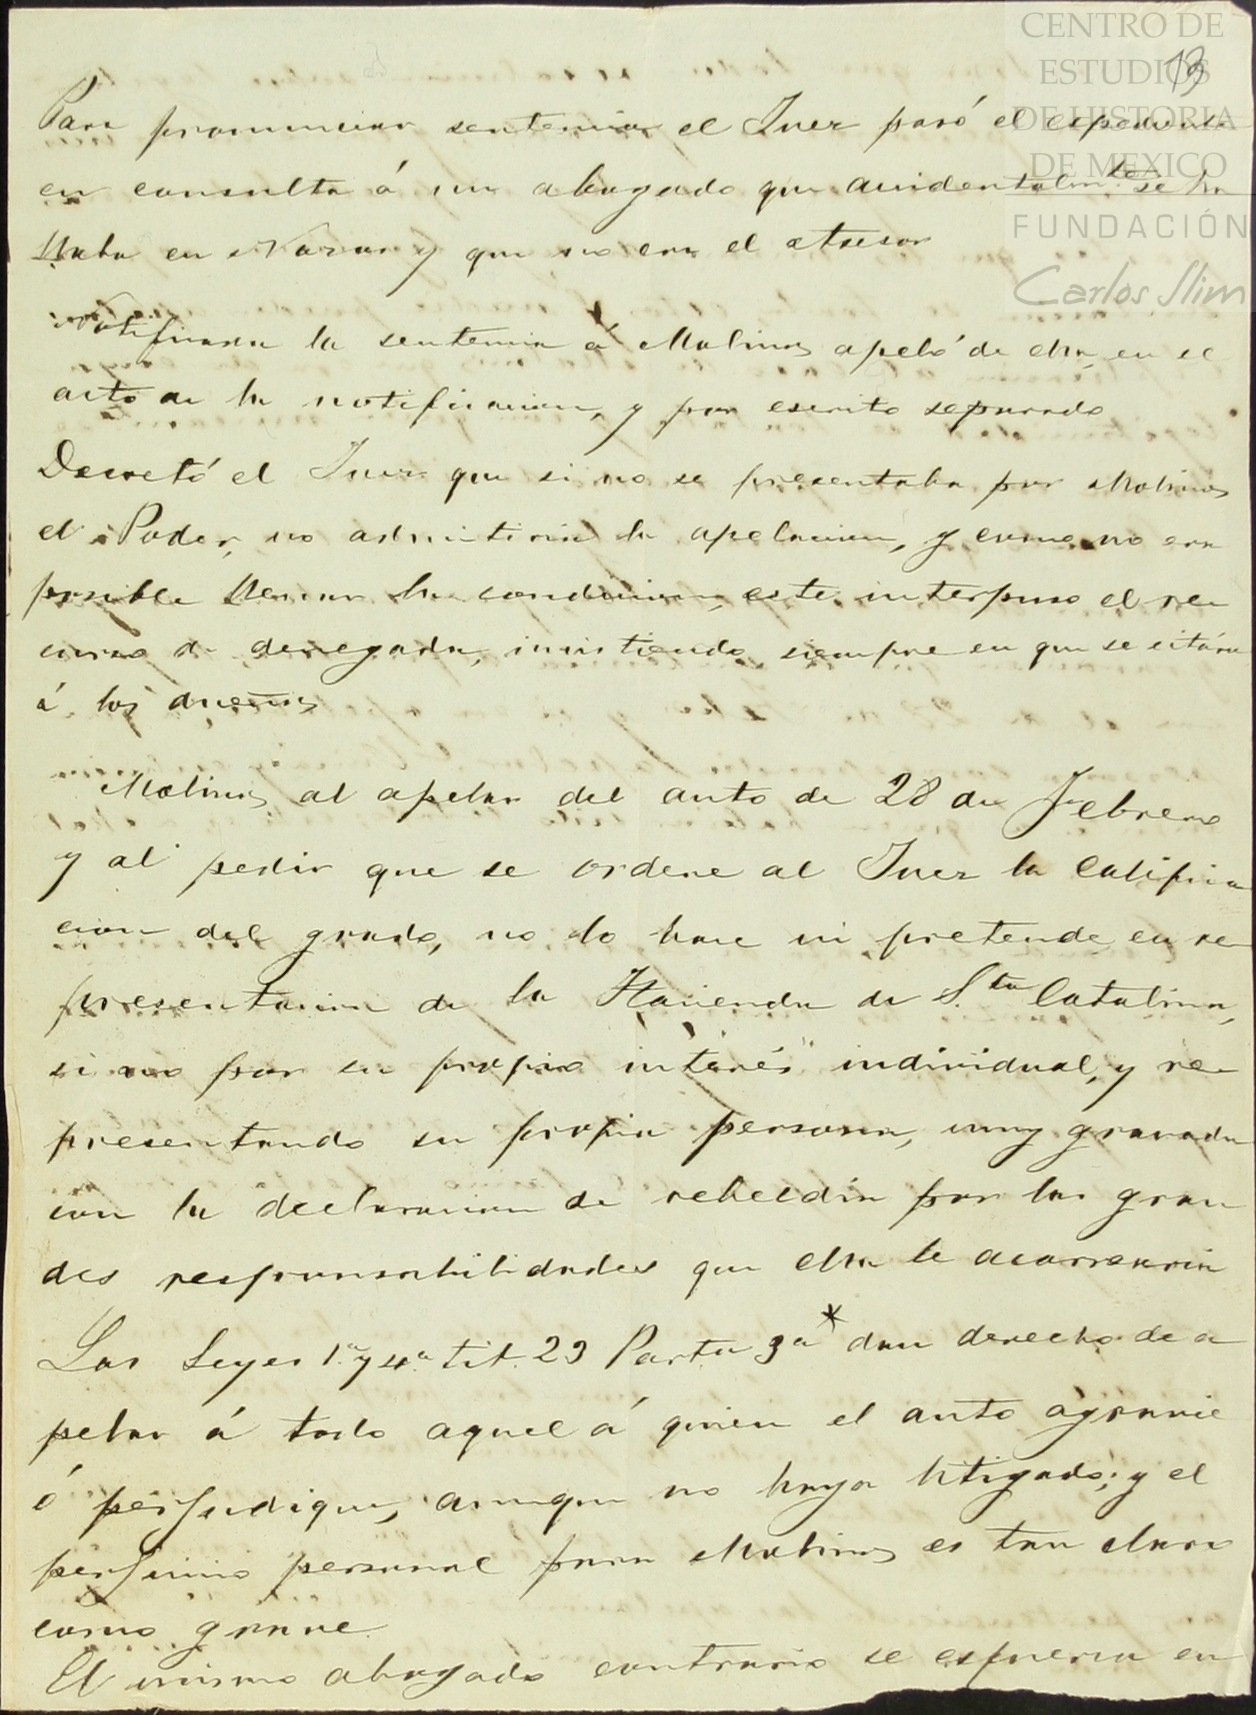 CENTRO DE
ESTUDIOS
DE HISTORIA
DE MEXICO
FUNDACIÓN
Carlos Slim
13
Para pronunciar sentencia el Juez pasó el espediente
en consulta á un abogado que accidentalmte se ha
llaba en Nazas y que no era el Asesor
Notificada la sentencia á Molinos apeló de ella, en el
acto de la notificacion, y por escrito separado
Decretó el Juez que si no se presentaba por Molinos
el Poder, no admitiria la apelacion, y como no era
posible llenar la condicion, este interpuso el re
curso de denegada, insistiendo siempre en que se citára
á los dueños
Molinos al apelar del auto de 28 de Febrero
y al pedir que se ordene al Juez la califica
cion del grado, no lo hace ni pretende en re
presentacion de la Hacienda de S.ta Catalina,
si no por su propio interés individual, y re
presentando su propia persona, muy gravada
con la declaracion de rebeldia por las gran
des responsabilidades que ella le acarrearia
Las Leyes 1.a y 4.a tit. 23 Parta 3a * dan derecho de a
pelar á todo aquel á quien el auto agravie
ó perjudique, aunque no haya litigado; y el
perjuicio personal para Molinos es tan claro
como grave.
El mismo abogado contrario se esfuerza en